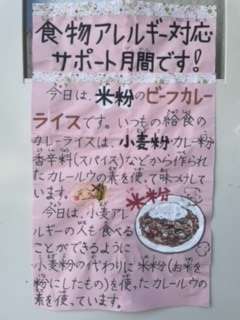 食物アレルギー対応
サポート月間です!
今日は、米粉のビーフカレー
ライスです。いつもの給食の
カレーライスは、小麦粉・カレー粉・
香辛料(スパイス)などから作られ
たカレールウの素を使って味つけして
います。
米粉
今日は、小麦アレ
ルギーの人も食べる
ことができるように
小麦粉の代わりに米粉(お米を
粉にしたもの)を使ったカレールウの
素を使っています。